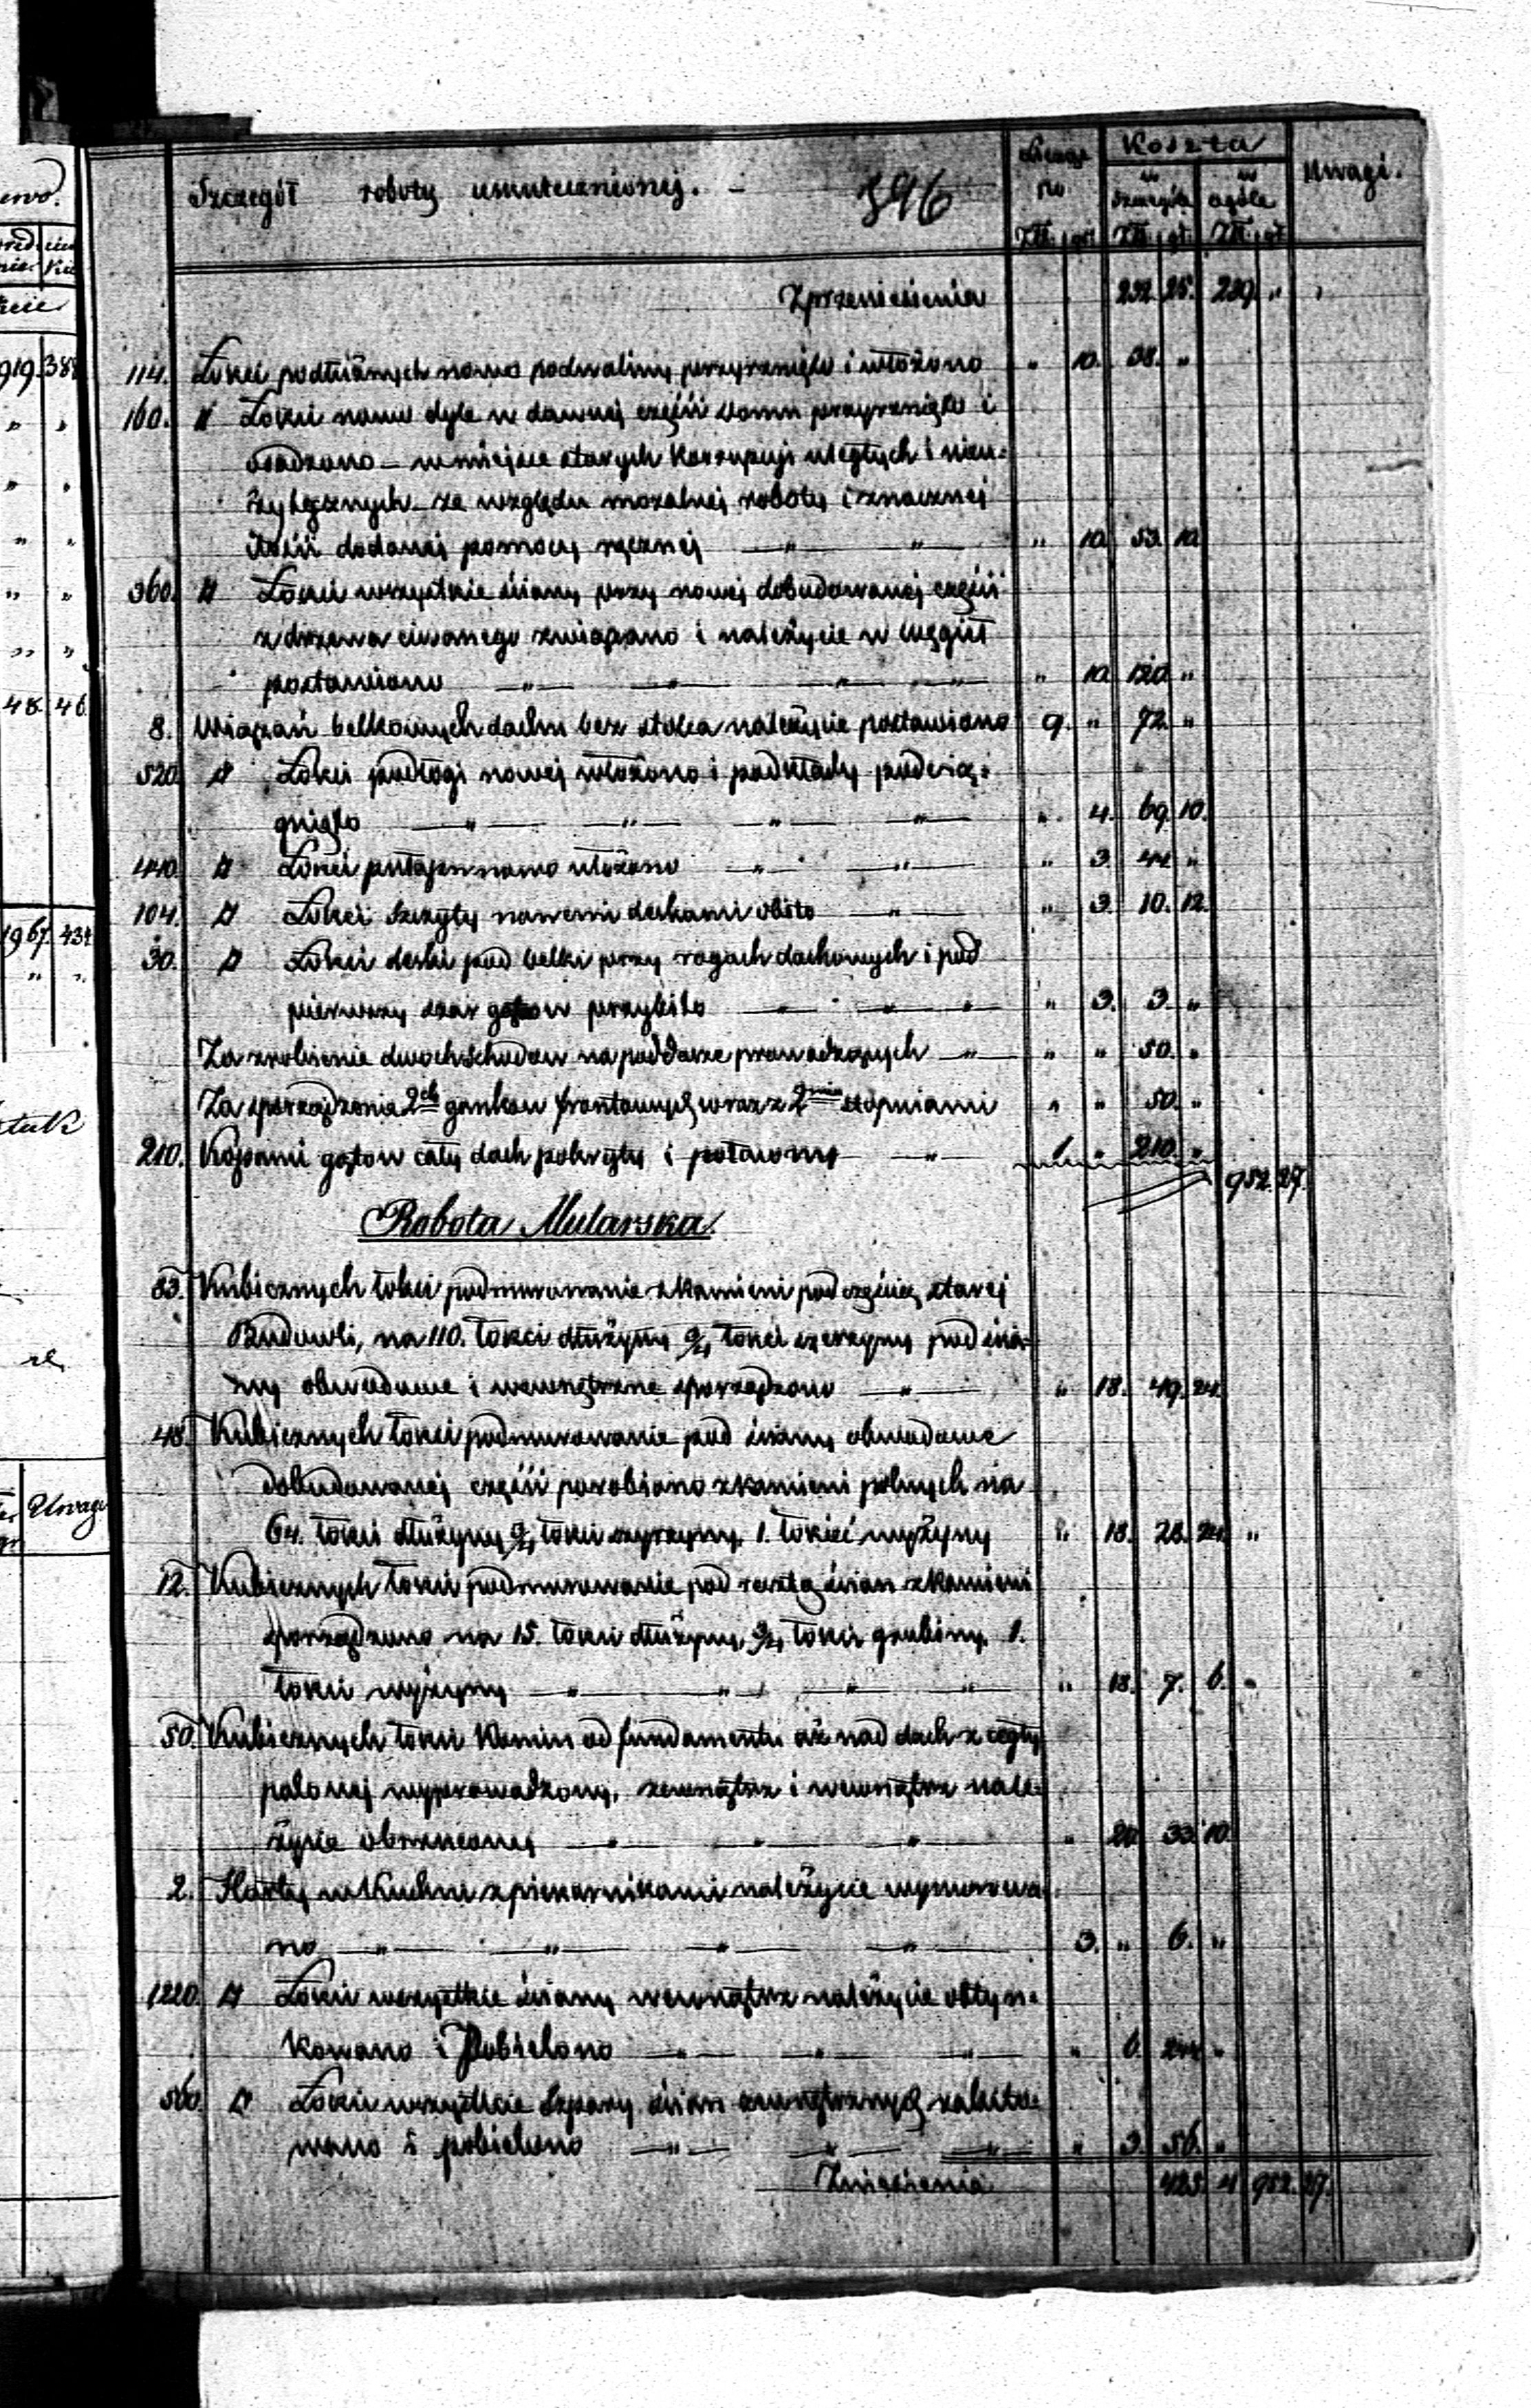 Szczegół roboty uskutecznionej. — 346
Liczą po
Koszta
w szczególe
w ogóle
Uwagi.
Złł. gr. Złł. gr. Złł. gr.
Zprzeniesienia 232. 25. 239. „
114. Łokci podłużnych nowo podwaliny przyrznięto i włożono „ 10. 38. „
160. □ Łokci nowe dyle w dawnej części domu przyrznięto i
osadzono — w miejsce starych korrupcyi uległych i nieu-
żytecznych ze względu mozolnej roboty i znacznej
ilości dodanej pomocy ręcznej — „ — „ — „ 10. 53. 10.
360. □ Łokci wszystkie ściany przy nowej dobudowanej części
z drzewa ciosanego związano i należycie w węgieł
postawiono — „ — „ — „ — „ — „ 10. 120. „
8. Wiązań belkowych dachu bez stolca należycie postawiono 9. „ 72. „
520. □ Łokci podłogi nowej ułożono i podkłady podcią-
gnięto — „ — „ — „ — „ — „ 4. 69. 10.
440. □ Łokci pułapu nowo ułożono — „ — „ — „ 3. 44. „
104. □ Łokci Szczyty nowemi deskami obito — „ — „ 3. 10. 12.
30. □ Łokci deski pod belki przy rogach dachowych i pod
pierwszy szar gątow przybito — „ — „ — „ „ 3. 3. „
Za zrobienie dwoch Schodow na poddasze prowadzących — „ — „ „ 50. „
Za zporządzenie 2ch gankow frontowych wraz z 2ma stopniami „ „ 50. „
210. Kopami gątow cały dach pokryty i połacony — „ — 1. „ 210. „
952. 27.
Robota Mularska.
83. Kubicznych łokci podmurowanie z kamieni pod częścią starej
Budowli, na 110. łokci dłużyny 3/4 łokci szerzyny pod ścia-
ny obwodowe i wewnętrzne zporządzono — „ — „ 18. 49. 24.
48. Kubicznych łokci podmurowanie pod ściany obwodowe
dobudowanej części porobiono z kamieni polnych na
64. łokci dłużyny 3/4 łokci szyrzyny, 1. łokieć wyżyny „ 18. 28. 24. „
12. Kubicznych łokci podmurowanie pod resztę ścian z kamieni
sporządzono na 15. łokci dłużyny, 3/4 łokci grubiny, 1.
łokci wyżyny — „ — „ — „ — „ „ 18. 7. 6. „
50. Kubicznych łokci Komin od fundamentu aż nad dach z cegły
palonej wyprowadzony, zewnątrz i wewnątrz nale-
życie obrzucony — „ — „ — „ „ 20. 33. 10.
2. w Kuchni z piekarnikami należycie wymurowa-
no — „ — „ — „ — „ — 3. „ 6. „
1220. □ Łokci wszystkie ściany wewnątrz należycie obtyn-
kowano i Pobielono — „ — „ — „ — „ 6. 244. „
560. □ Łokci wszystkie Szpary ścian zewnętrznych zakito-
wano i pobielono — „ — „ — „ — „ 3. 56. „
Zniesienie 425. 4. 952. 27.
Uwagi